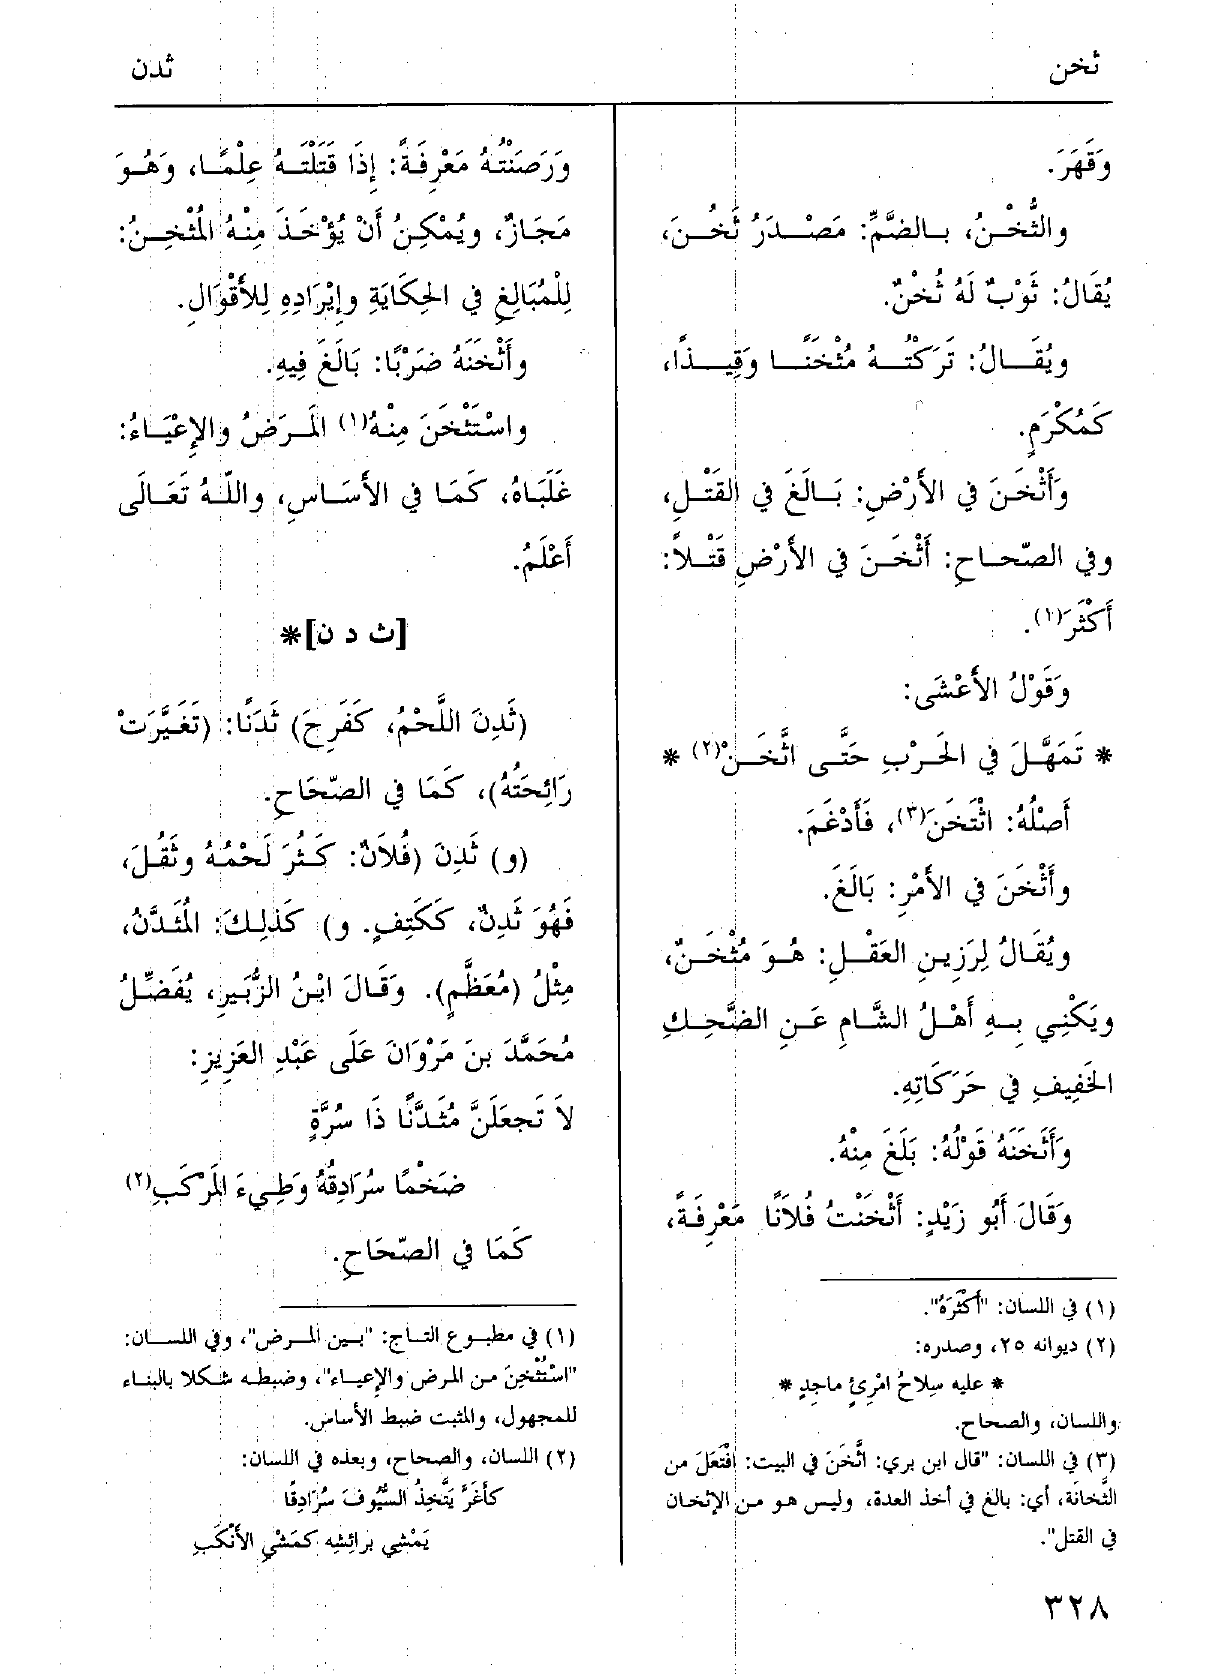 ثخن
ثدن
وَقَهَرَ.
والثُّخْنُ، بالضَّمِّ: مَصْدَرُ ثَخُنَ،
يُقَالُ: ثَوْبٌ لَهُ ثُخْنٌ.
ويُقَالُ: تَرَكْتُهُ مُثْخَنًا وَقِيذًا،
كَمُكْرَمٍ.
وَأَثْخَنَ في الأَرْضِ: بَالَغَ في القَتْلِ،
وفي الصّحاحِ: أَثْخَنَ في الأَرْضِ قَتْلاً:
أَكْثَرَ(١).
وَقَوْلُ الأَعْشَى:
* تَمَهَّلَ في الحَرْبِ حَتَّى اثَّخَنْ(٢) *
أَصْلُهُ: اثْتَخَنَ(٣)، فَأَدْغَمَ.
وأَثْخَنَ في الأَمْرِ: بَالَغَ.
ويُقَالُ لِرَزِينِ العَقْلِ: هُوَ مُثْخَنٌ،
ويَكْنِي بِهِ أَهْلُ الشَّامِ عَنِ الضَّحِكِ
الخَفِيفِ في حَرَكَاتِهِ.
وَأَثْخَنَهُ قَوْلُهُ: بَلَغَ مِنْهُ.
وَقَالَ أَبُو زَيْدٍ: أَثْخَنْتُ فُلَانًا مَعْرِفَةً،
(١) في اللسان: "أَكْثَرَهُ".
(٢) ديوانه ٢٥، وصدره:
* عليه سِلاحُ امْرِئٍ ماجِدٍ *
واللسان، والصحاح.
(٣) في اللسان: "قال ابن بري: اثَّخَنَ في البيت: افْتَعَلَ من
الثَّخانَة، أي: بالغ في أخذ العدة، وليس هو من الإثخان
في القتل".
وَرَصَنْتُهُ مَعْرِفَةً: إِذَا قَتَلْتَهُ عِلْمًا، وَهُوَ
مَجَازٌ، ويُمْكِنُ أَنْ يُؤْخَذَ مِنْهُ المُثْخِنُ:
لِلْمُبَالِغِ في الحِكَايَةِ وإِيْرَادِهِ لِلأَقْوَالِ.
وأَثْخَنَهُ ضَرْبًا: بَالَغَ فِيهِ.
واسْتَثْخَنَ مِنْهُ(١) المَرَضُ والإِعْيَاءُ:
غَلَبَاهُ، كَمَا في الأَسَاسِ، واللّهُ تَعَالَى
أَعْلَمُ.
[ث د ن]*
(ثَدِنَ اللَّحْمُ، كَفَرِحَ) ثَدَنًا: (تَغَيَّرَتْ
رَائِحَتُهُ)، كَمَا في الصّحَاحِ.
(و) ثَدِنَ (فُلاَنٌ: كَثُرَ لَحْمُهُ وثَقُلَ،
فَهُوَ ثَدِنٌ، كَكَتِفٍ. و) كَذلِكَ: المُثَدَّنُ،
مِثْلُ (مُعَظَّمٍ). وَقَالَ ابْنُ الزُّبَيرِ، يُفَضِّلُ
مُحَمَّدَ بنَ مَرْوَانَ عَلَى عَبْدِ العَزِيزِ:
لاَ تَجعَلَنَّ مُثَدَّنًا ذَا سُرَّةٍ
ضَخْمًا سُرَادِقُهُ وَطِيءَ المَرْكَبِ(٢)
كَمَا في الصّحَاحِ.
(١) في مطبوع التاج: "بين المرض"، وفي اللسان:
"اسْتُثْخِنَ من المرض والإعياء"، وضبطه شكلا بالبناء
للمجهول، والمثبت ضبط الأساس.
(٢) اللسان، والصحاح، وبعده في اللسان:
كأغَرَّ يَتَّخِذُ السُّيُوفَ سُرَادِقًا
يَمْشِي برائِشِه كمَشْيِ الأَنْكَبِ
٣٢٨